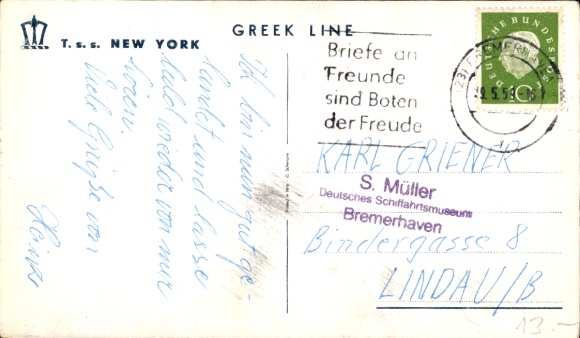 GREEK LINE
T.s.s. NEW YORK
Ich bin nun gut ge-
landet und lasse
bald wieder von mir
hören.
Viele Grüße von
Heinz
Briefe an
Freunde
sind Boten
der Freude
DEUTSCHE BUNDESPOST
10
KARL GRIENER
S. Müller
Deutsches Schiffahrtsmuseum
Bremerhaven
Bindergasse 8
LINDAU/B
13.-